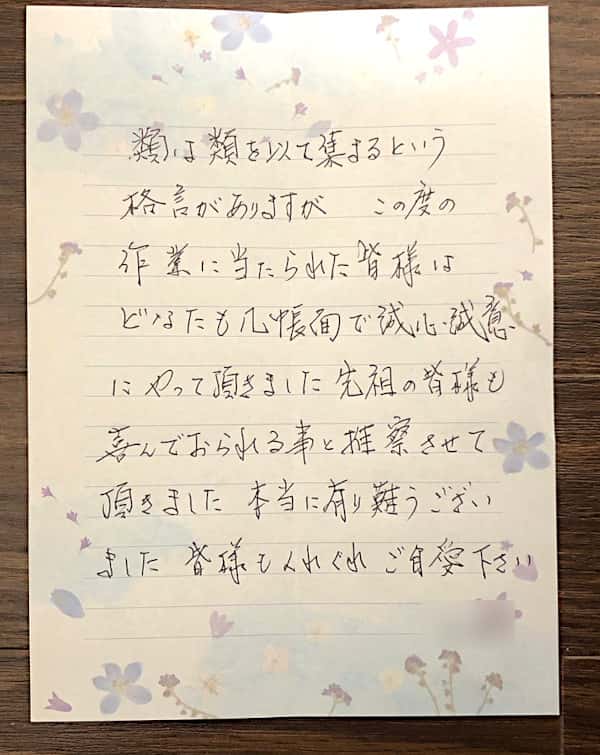 類は類を以て集まるという
格言がありますが この度の
作業に当たられた皆様は
どなたも几帳面で誠心誠意
にやって頂きました 先祖の皆様も
喜んでおられる事と推察させて
頂きました 本当に有り難うござい
ました 皆様もくれぐれご自愛下さい